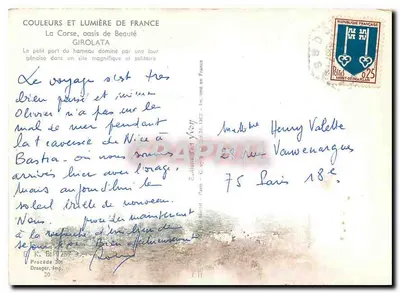 COULEURS ET LUMIÈRE DE FRANCE
La Corse, oasis de Beauté
GIROLATA
Le petit port du hameau dominé par une tour
génoise dans un site magnifique et solitaire
Le voyage s'est très
bien passé et même
Olivier n'a pas eu le
mal de mer pendant
la traversée de Nice à
Bastia - où nous sommes
arrivés hier avec l'orage,
mais aujourd'hui le
soleil brille de nouveau.
Nous
à la recherche d'un
bien affectueusement
Procédé
Draeger, Imp.
REPUBLIQUE FRANÇAISE
0,25
Henry Valette
2 rue Vauvenargues
75 Paris 18e